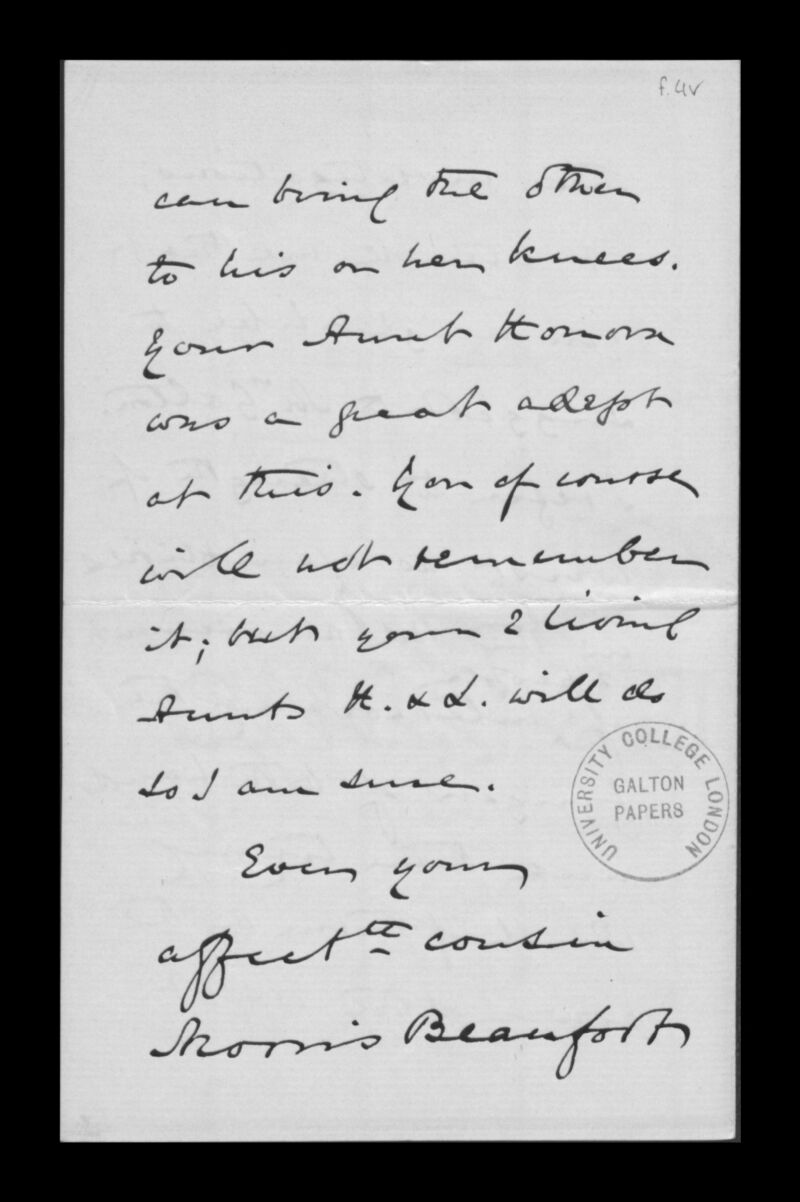 f.4v
can bring the other
to his or her knees.
Your Aunt Honora
was a great adept
at this. You of course
will not remember
it; but your 2 living
Aunts H. & L. will do
so I am sure.
Ever your
affectte cousin
Morris Beaufort
UNIVERSITY COLLEGE LONDON
GALTON
PAPERS